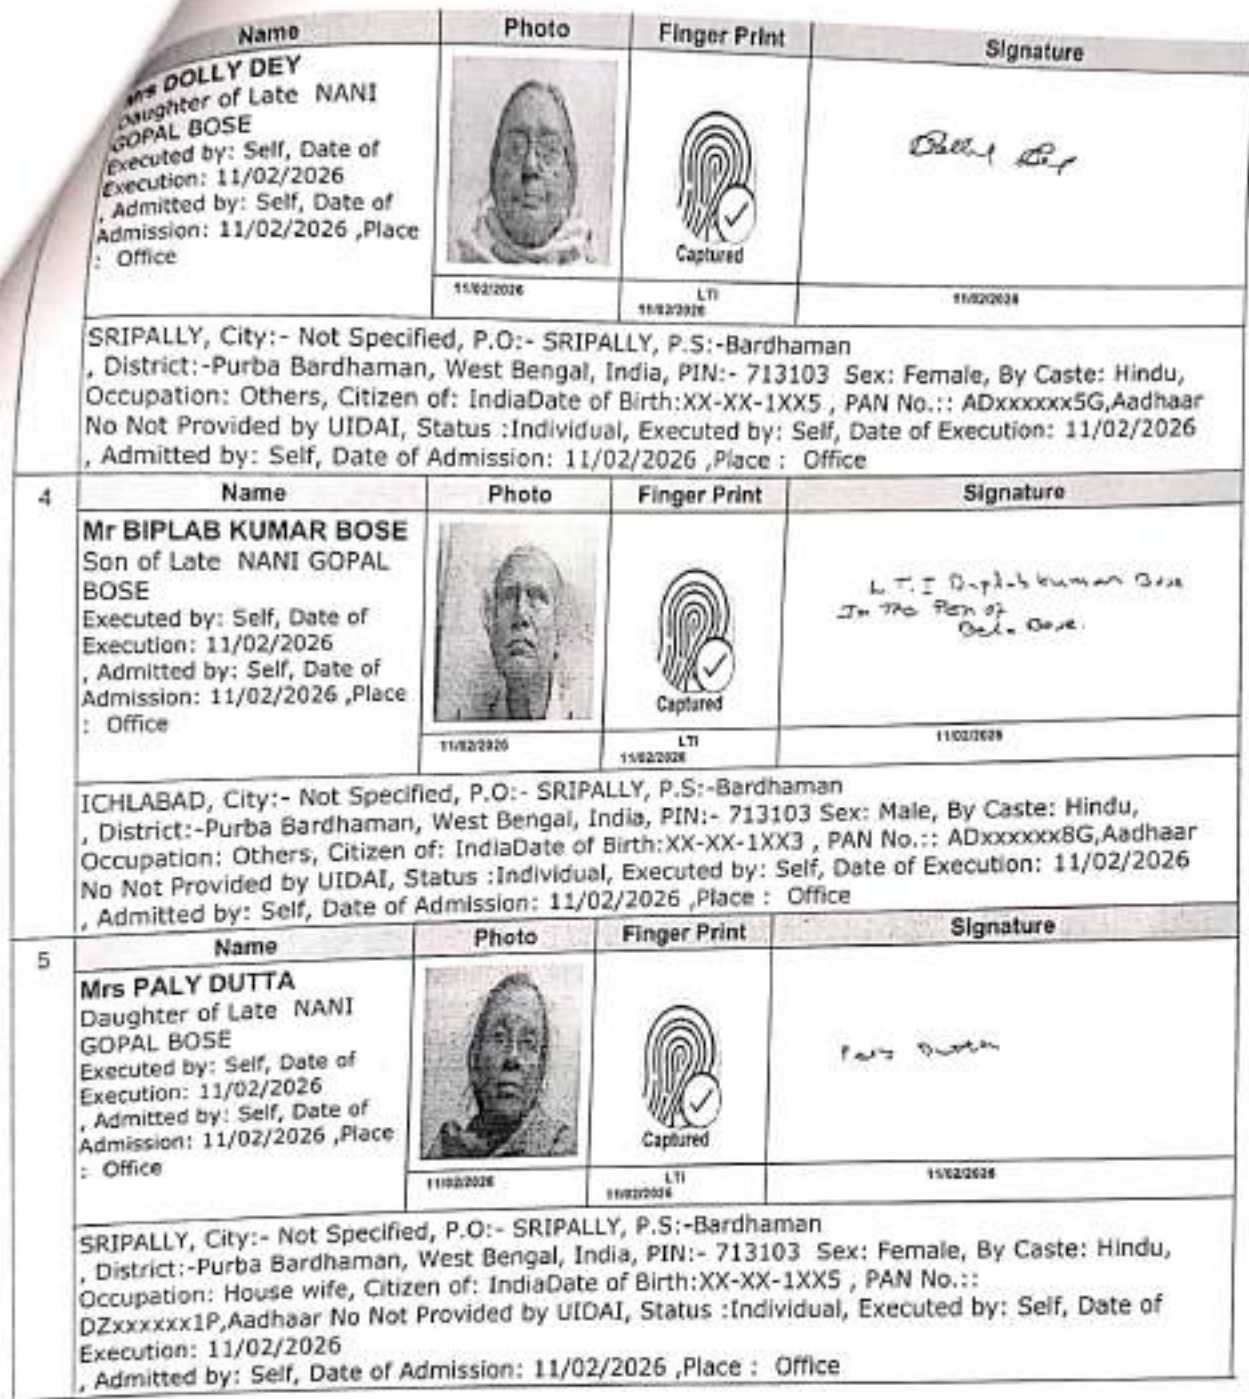 Name Photo Finger Print Signature
Mrs DOLLY DEY
Daughter of Late NANI
GOPAL BOSE
Executed by: Self, Date of
Execution: 11/02/2026
, Admitted by: Self, Date of
Admission: 11/02/2026 ,Place
: Office
Captured
11/02/2026 LTI 11/02/2026 11/02/2026
SRIPALLY, City:- Not Specified, P.O:- SRIPALLY, P.S:-Bardhaman
, District:-Purba Bardhaman, West Bengal, India, PIN:- 713103 Sex: Female, By Caste: Hindu,
Occupation: Others, Citizen of: IndiaDate of Birth:XX-XX-1XX5 , PAN No.:: ADxxxxxx5G,Aadhaar
No Not Provided by UIDAI, Status :Individual, Executed by: Self, Date of Execution: 11/02/2026
, Admitted by: Self, Date of Admission: 11/02/2026 ,Place : Office
4 Name Photo Finger Print Signature
Mr BIPLAB KUMAR BOSE
Son of Late NANI GOPAL
BOSE
Executed by: Self, Date of
Execution: 11/02/2026
, Admitted by: Self, Date of
Admission: 11/02/2026 ,Place
: Office
Captured
L.T.I Biplab kumar Bose
In The Pen of
Bela Bose.
11/02/2026 LTI 11/02/2026 11/02/2026
ICHLABAD, City:- Not Specified, P.O:- SRIPALLY, P.S:-Bardhaman
, District:-Purba Bardhaman, West Bengal, India, PIN:- 713103 Sex: Male, By Caste: Hindu,
Occupation: Others, Citizen of: IndiaDate of Birth:XX-XX-1XX3 , PAN No.:: ADxxxxxx8G,Aadhaar
No Not Provided by UIDAI, Status :Individual, Executed by: Self, Date of Execution: 11/02/2026
, Admitted by: Self, Date of Admission: 11/02/2026 ,Place : Office
5 Name Photo Finger Print Signature
Mrs PALY DUTTA
Daughter of Late NANI
GOPAL BOSE
Executed by: Self, Date of
Execution: 11/02/2026
, Admitted by: Self, Date of
Admission: 11/02/2026 ,Place
: Office
Captured
Paly Dutta
11/02/2026 LTI 11/02/2026 11/02/2026
SRIPALLY, City:- Not Specified, P.O:- SRIPALLY, P.S:-Bardhaman
, District:-Purba Bardhaman, West Bengal, India, PIN:- 713103 Sex: Female, By Caste: Hindu,
Occupation: House wife, Citizen of: IndiaDate of Birth:XX-XX-1XX5 , PAN No.::
DZxxxxxx1P,Aadhaar No Not Provided by UIDAI, Status :Individual, Executed by: Self, Date of
Execution: 11/02/2026
, Admitted by: Self, Date of Admission: 11/02/2026 ,Place : Office